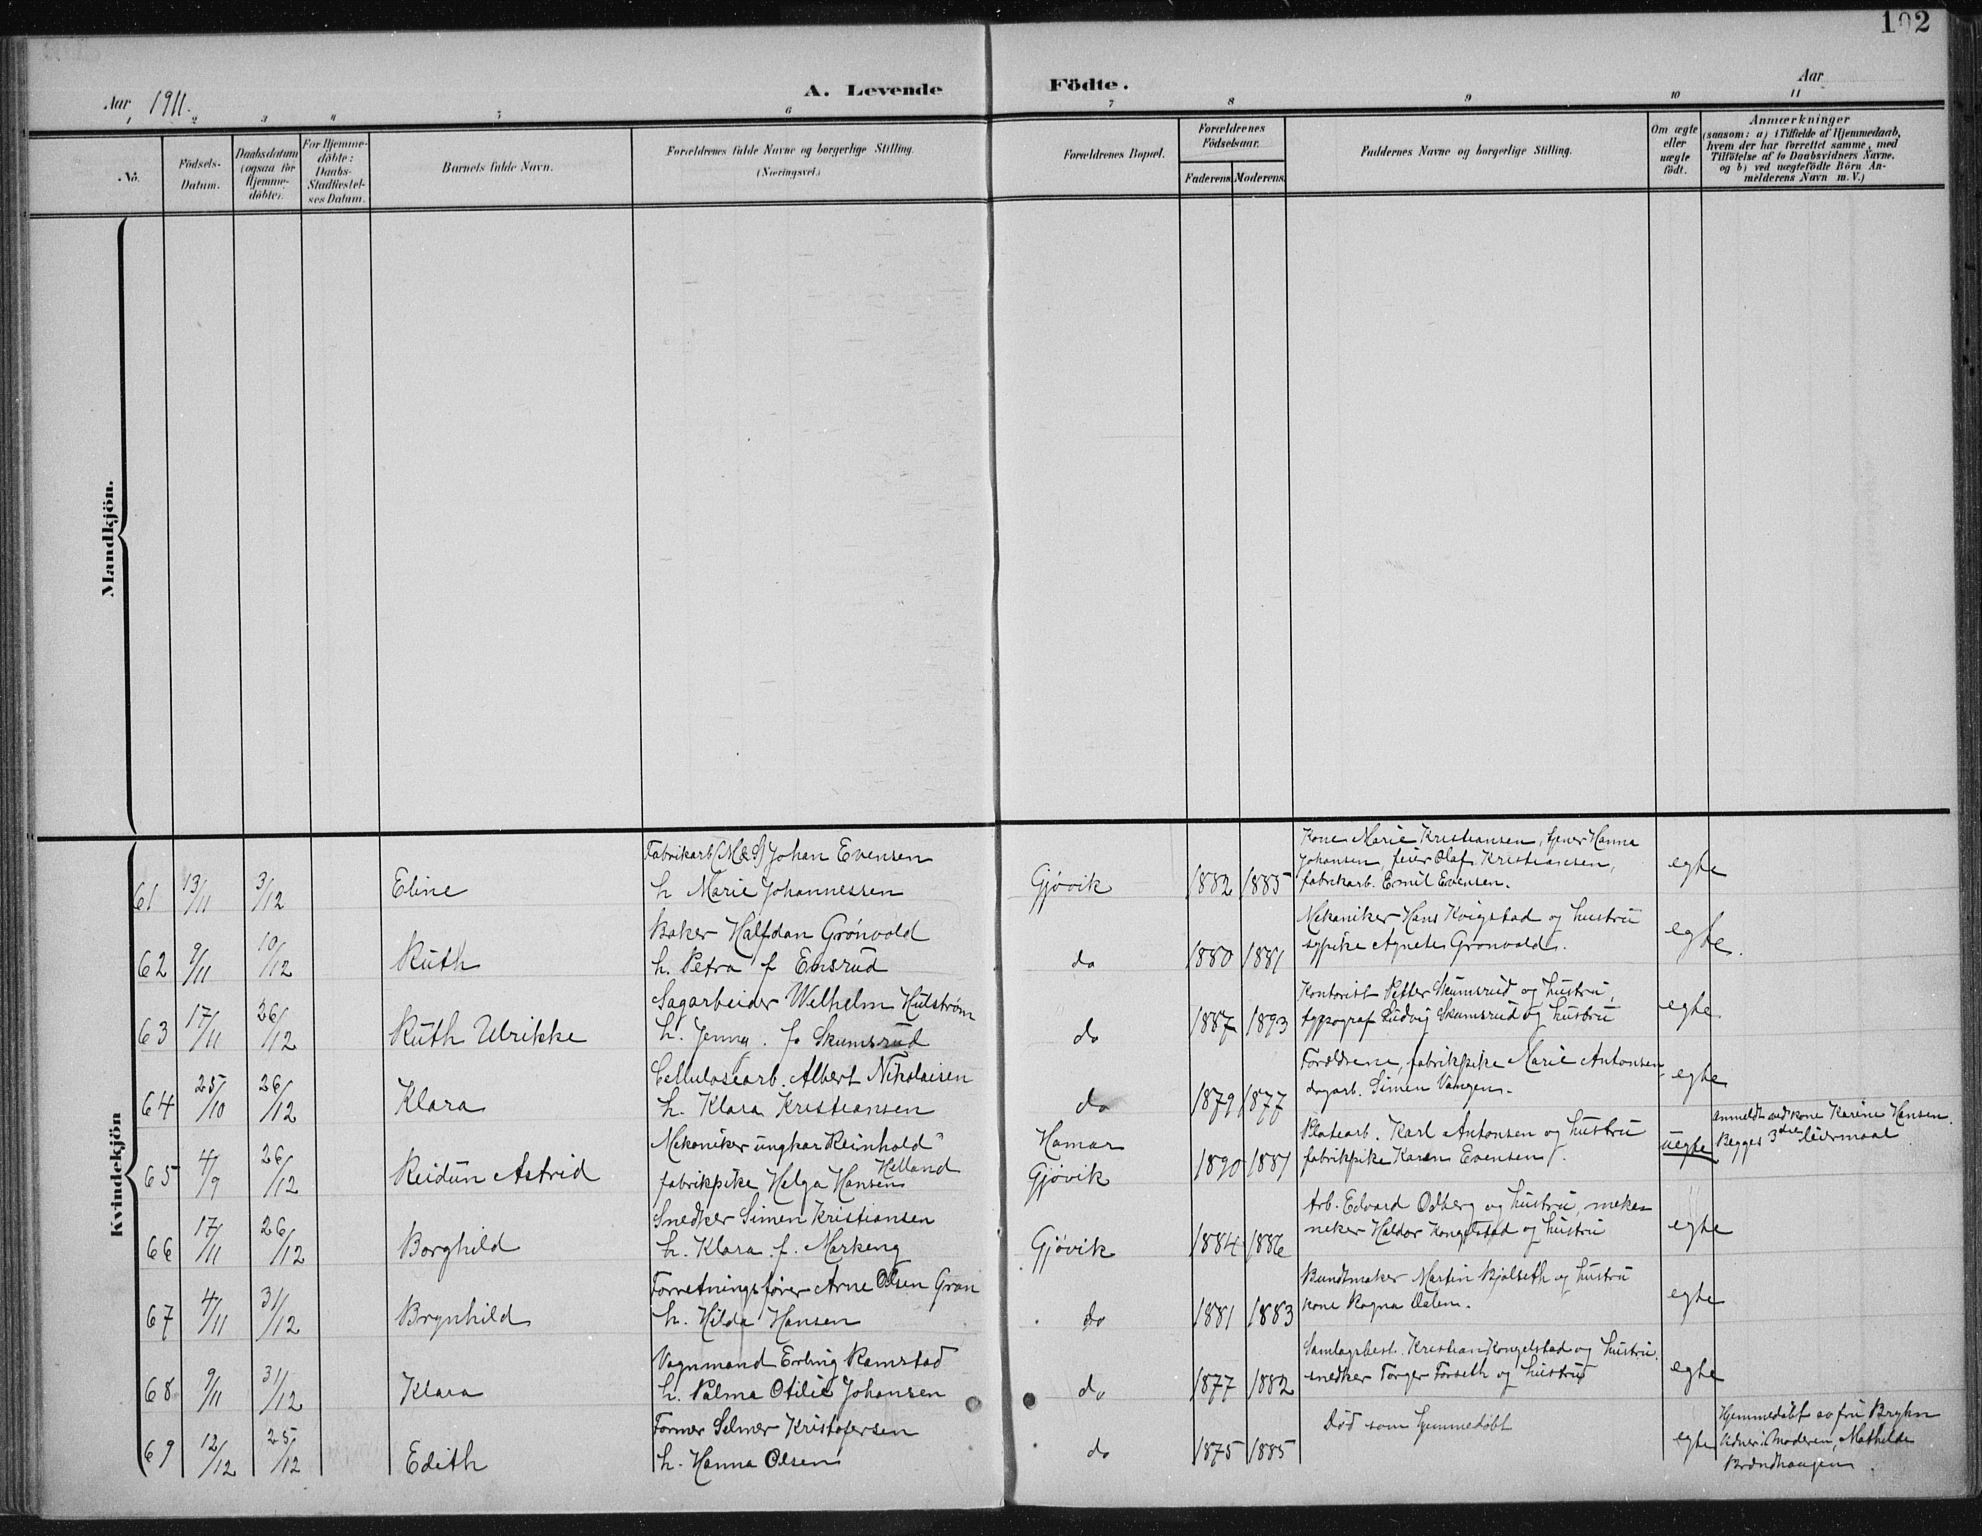 102
Aar 1911.
A. Levende Födte.
Aar
1 2 3 4 5 6 7 8 9 10 11
No.
Födsels-Datum.
Daabsdatum (ogsaa för Hjemme-döbte).
For Hjemme-döbte: Daabs-Stadfæstel-ses Datum.
Barnets fulde Navn.
Forældrenes fulde Navne og borgerlige Stilling. (Næringsvei.)
Forældrenes Bopæl.
Forældrenes Födselsaar.
Faderens. Moderens.
Faddernes Navne og borgerlige Stilling.
Om ægte eller uægte födt.
Anmærkninger
(saasom: a) i Tilfælde af Hjemmedaab,
hvem der har forrettet samme, med
Tilföielse af to Daabsvidners Navne,
og b) ved uægtefödte Börn An-
melderens Navn m. V.)
Mandkjön.
Kvindekjön
61 13/11 3/12 Eline
Fabrikarb. Johan Evensen
h. Marie Johannessen
Gjøvik 1882 1885
Kone Marie Kristiansen, Hanna
Johansen, feier Olaf Kristiansen,
fabrikarb. Emil Evensen.
egte
62 9/11 10/12 Ruth
Baker Halfdan Grønvold
h. Petra f Emsrud
do 1880 1881
Mekaniker Hans Kvigstad og hustru
sypike Agnete Grønvold.
egte.
63 17/11 26/12 Ruth Ulrikke
Sagarbeider Wilhelm Hulstrøm
h. Jenny f. Skumsrud
do 1887 1893
Kontorist Petter Skumsrud og hustru,
typograf Ludvig Skumsrud og hustru
egte
64 25/10 26/12 Klara
Cellulosearb. Albert Nikolaisen
h. Klara Kristiansen
do 1879 1877
Forældrene, fabrikpike Marie Antonsen,
dagarb. Simen Vangen.
egte
65 4/9 26/12 Reidun Astrid
Mekaniker ungkar Reinhold Helland
fabrikpike Helga Hansen
Hamar
Gjøvik 1890 1881
Platearb. Karl Antonsen og hustru
fabrikpike Karen Evensen.
uegte
Anmeldt ved kone Karine Hansen.
Begges 3die leiermaal
66 17/11 26/12 Borghild
Snedker Simen Kristiansen
h. Klara f. Markeng
Gjøvik 1884 1886
Arb. Edvard Odberg og hustru, meka-
neker Haldor Kongelstad og hustru
egte
67 4/11 31/12 Brynhild
Forretningsfører Arne Olsen Gran
h. Hilda Hansen
do 1881 1883
Bundtmaker Martin Bjølseth og hustru
kone Ragna Dalen.
egte
68 9/11 31/12 Klara
Vognmand Erling Ramstad
h. Palma Otilie Johansen
do 1877 1882
Samlagsbest. Kristian Kongelstad og hustru.
snedker Torger Forseth og hustru
egte
69 12/12 25/12 Edith
Former Selmer Kristofersen
h. Hanna Olsen
do 1875 1885
Død som hjemmedøbt
egte
Hjemmedøbt av fru Bryhn
Vidner: Moderen, Mathilde
Brændhaugen